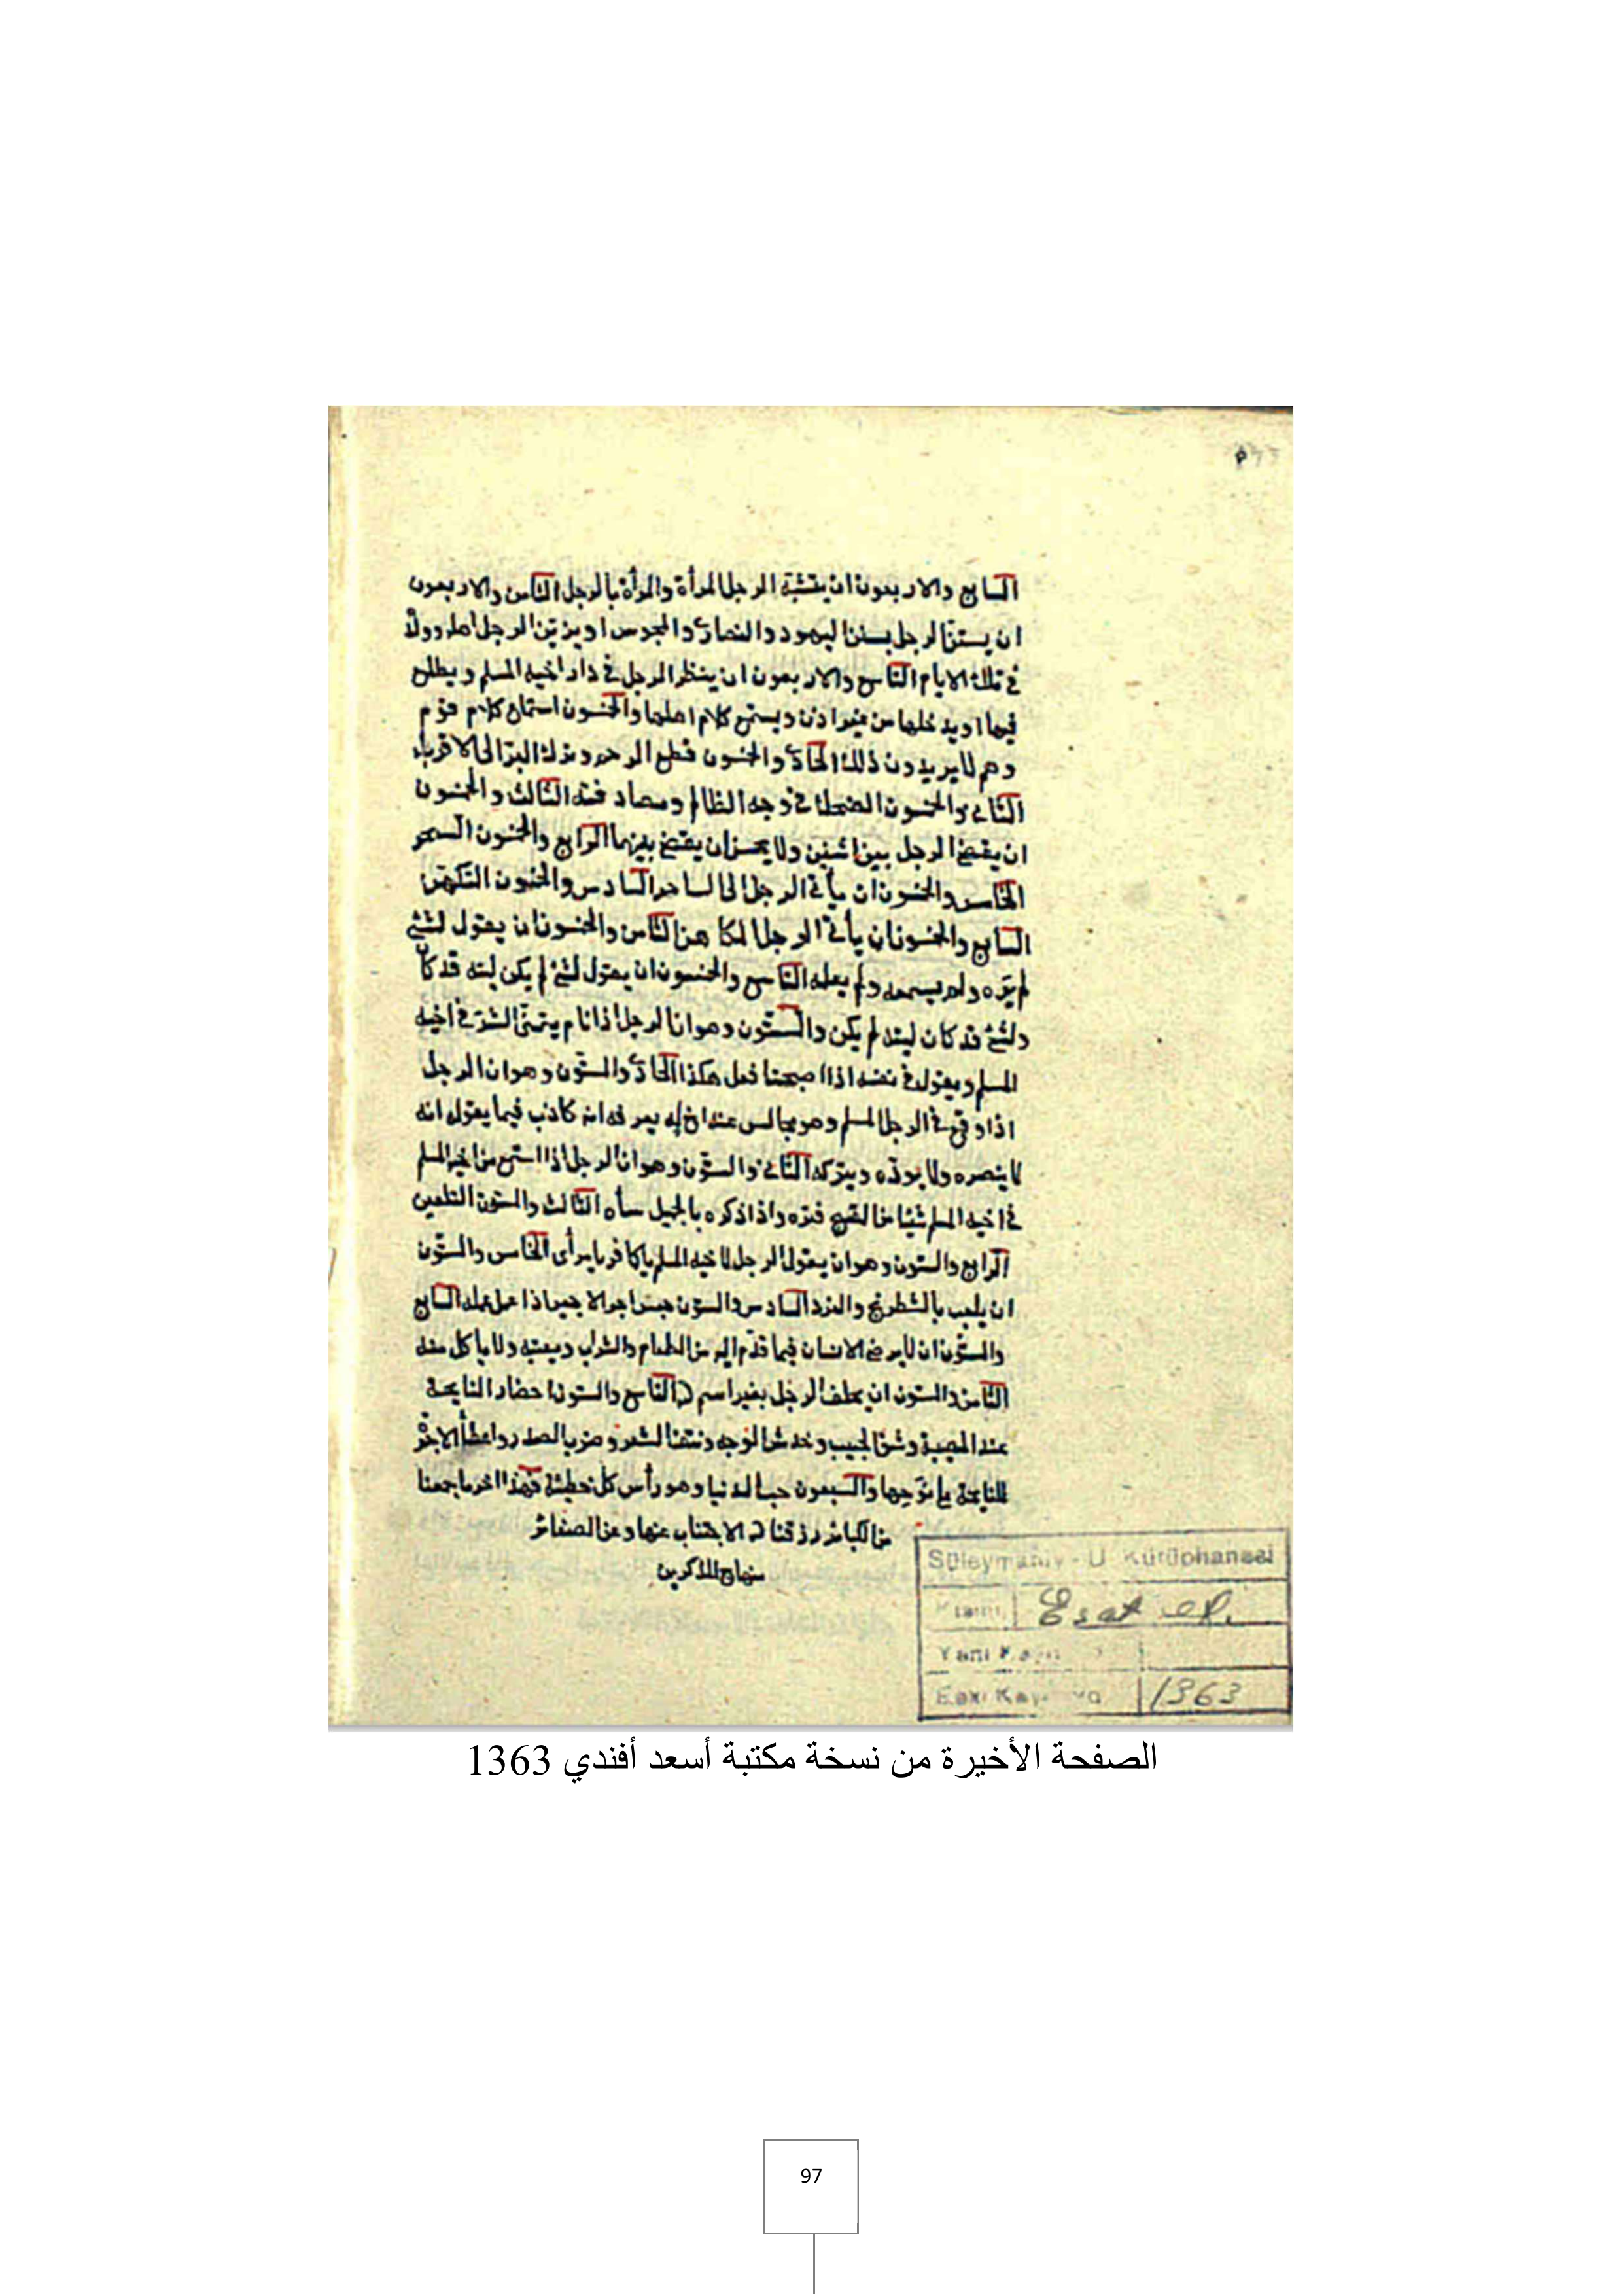 السابع والاربعون ان يتشبة الرجل المرأة والمرأة بالرجل الثامن والاربعون
ان يستن الرجل بسنن اليهود والنصارى والمجوس او يزين الرجل اهله وولده
في تلك الايام التاسع والاربعون ان ينظر الرجل في دار اخيه المسلم ويطلع
فيها او يدخلها من غير اذن ويستمع كلام اهلها والخمسون استماع كلام قوم
وهم لا يريدون ذلك الحادى والخمسون قطع الرحم وترك البر الى الاقرباء
الثانى والخمسون الضحك في وجه الظالم ومصادقته الثالث والخمسون
ان يقضى الرجل بين اثنين ولا يحسن ان يقضى بينهما الرابع والخمسون السحر
الخامس والخمسون ان يأتى الرجل الى الساحر السادس والخمسون التكهن
السابع والخمسون ان يأتى الرجل الكاهن الثامن والخمسون ان يقول لشئ
لم يره ولم يسمعه ولم يعلمه التاسع والخمسون ان يقول لشئ لم يكن ليته قد كان
ولشئ قد كان ليته لم يكن والستون وهو ان الرجل اذا نام يتمنى الشر في اخيه
المسلم ويقول في نفسه اذا اصبحنا فعل هكذا الحادى والستون وهو ان الرجل
اذا وقع في الرجل المسلم وهو يجالس عند يعرفه انه كاذب فيما يقول انه
لا ينصره ولا ويتركه الثانى والستون وهو ان الرجل اذا استمع من اخيه المسلم
في اخيه المسلم شيئا من القبيح واذا ذكره بالجميل الثالث والستون
الرابع والستون وهو ان يقول الرجل لاخيه المسلم يا كافر يا مرأى الخامس والستون
ان يلعب بالشطرنج والنرد السادس والستون حبس اجر الاجير اذا عمل عمله السابع
والستون ان لا يرضى الانسان فيما قدم اليه من الطعام والشراب ويعيبه ولا ياكل منه
الثامن والستون ان يحلف الرجل بغير اسم التاسع والستون احضار النايحة
عند المصيبة وشق الجيب وخدش الوجه ونتف الشعر وضرب الصدر واعطاء الاجرة
للنايحة والسبعون حب الدنيا وهو رأس كل خطيئة فهذا اخر ما جمعنا
من الكبائر رزقنا الاجتناب عنها وعن الصغائر
منهاج الذاكرين
Kütüphanesi
Esat ef.
1363
الصفحة الأخيرة من نسخة مكتبة أسعد أفندي 1363
97